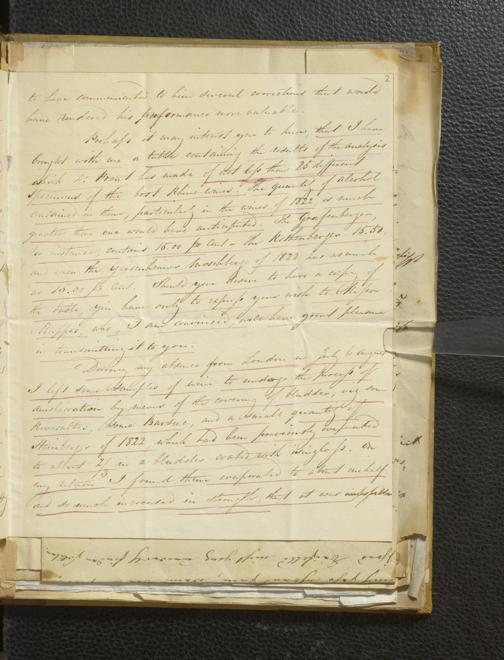 2
to have communicated to him several corrections that would
have rendered his performance more valuable.
Perhaps it may interest you to know, that I have
brought with me a table containing the results of the analysis
which Dr. Prout has made of not less than 25 different
specimens of the best Rhine wines. The quantity of alcohol
contained in them, particularly in the wines of 1822 is much
greater than one would have anticipated. The Graefenberger,
for instance, contains 15.00 pr Cent. the Rothenberger 15.50
and even the 1822 has as much
as 13.00 pr Cent. Should you desire to have a copy of
the table, you have only to express your wish to
who, I am convinced, will have great pleasure
in transmitting it to you.
During my absence from London in July & August
I left some samples of wine to undergo the process of
amelioration by means of the covering of bladder, viz. some
Rivesaltes, some Barsac, and a small quantity of
Steinberg of 1822 which had been previously evaporated
to about 2/3 in a bladder coated with isinglass. On
my return I found them evaporated to about one half
and so much increased in strength, that it was impossible